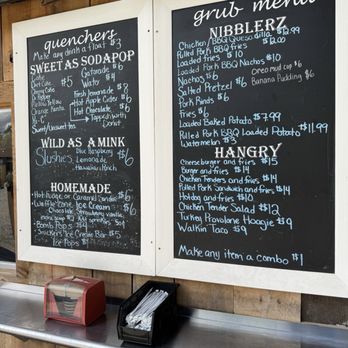 quenchers
Make any drink a float $3
SWEET AS SODAPOP
Coke
Diet Coke
Gatorade $6
Water $4
$5
Mellow Yellow
Fresh Lemonade $8
Hot Apple Cider $6
Hot Chocolate $6
Sweet/Unsweet tea
Donut
WILD AS A MINK
Slushies
Blue Raspberry
Lemonade
Hawaiian Punch
$6
HOMEMADE
Hot Fudge or Caramel Sundae $6
Waffle Cone Ice Cream $6
Chocolate Strawberry Vanilla
Bomb Pops $4
Snickers Ice Cream Bar $5
Ice Pops $1
grub menu
NIBBLERZ
Chicken/BBQ Quesadilla $12.99
Pulled Pork BBQ fries $12.00
Loaded fries $10
Loaded Pork BBQ Nachos $10
Nachos $6
Oreo mud cup $6
Salted Pretzel $6
Banana Pudding $6
Pork Rinds $6
Fries $6
Loaded Baked Potato $7.99
Pulled Pork BBQ Loaded Potato $11.99
Watermelon $3
HANGRY
Cheeseburger and fries $15
Burger and fries $14
Chicken Tenders and fries $14
Pulled Pork Sandwich and fries $14
Hotdog and fries $10
Chicken Tender Salad $12
Turkey Provolone Hoagie $9
Walkin Taco $9
Make any item a combo $1